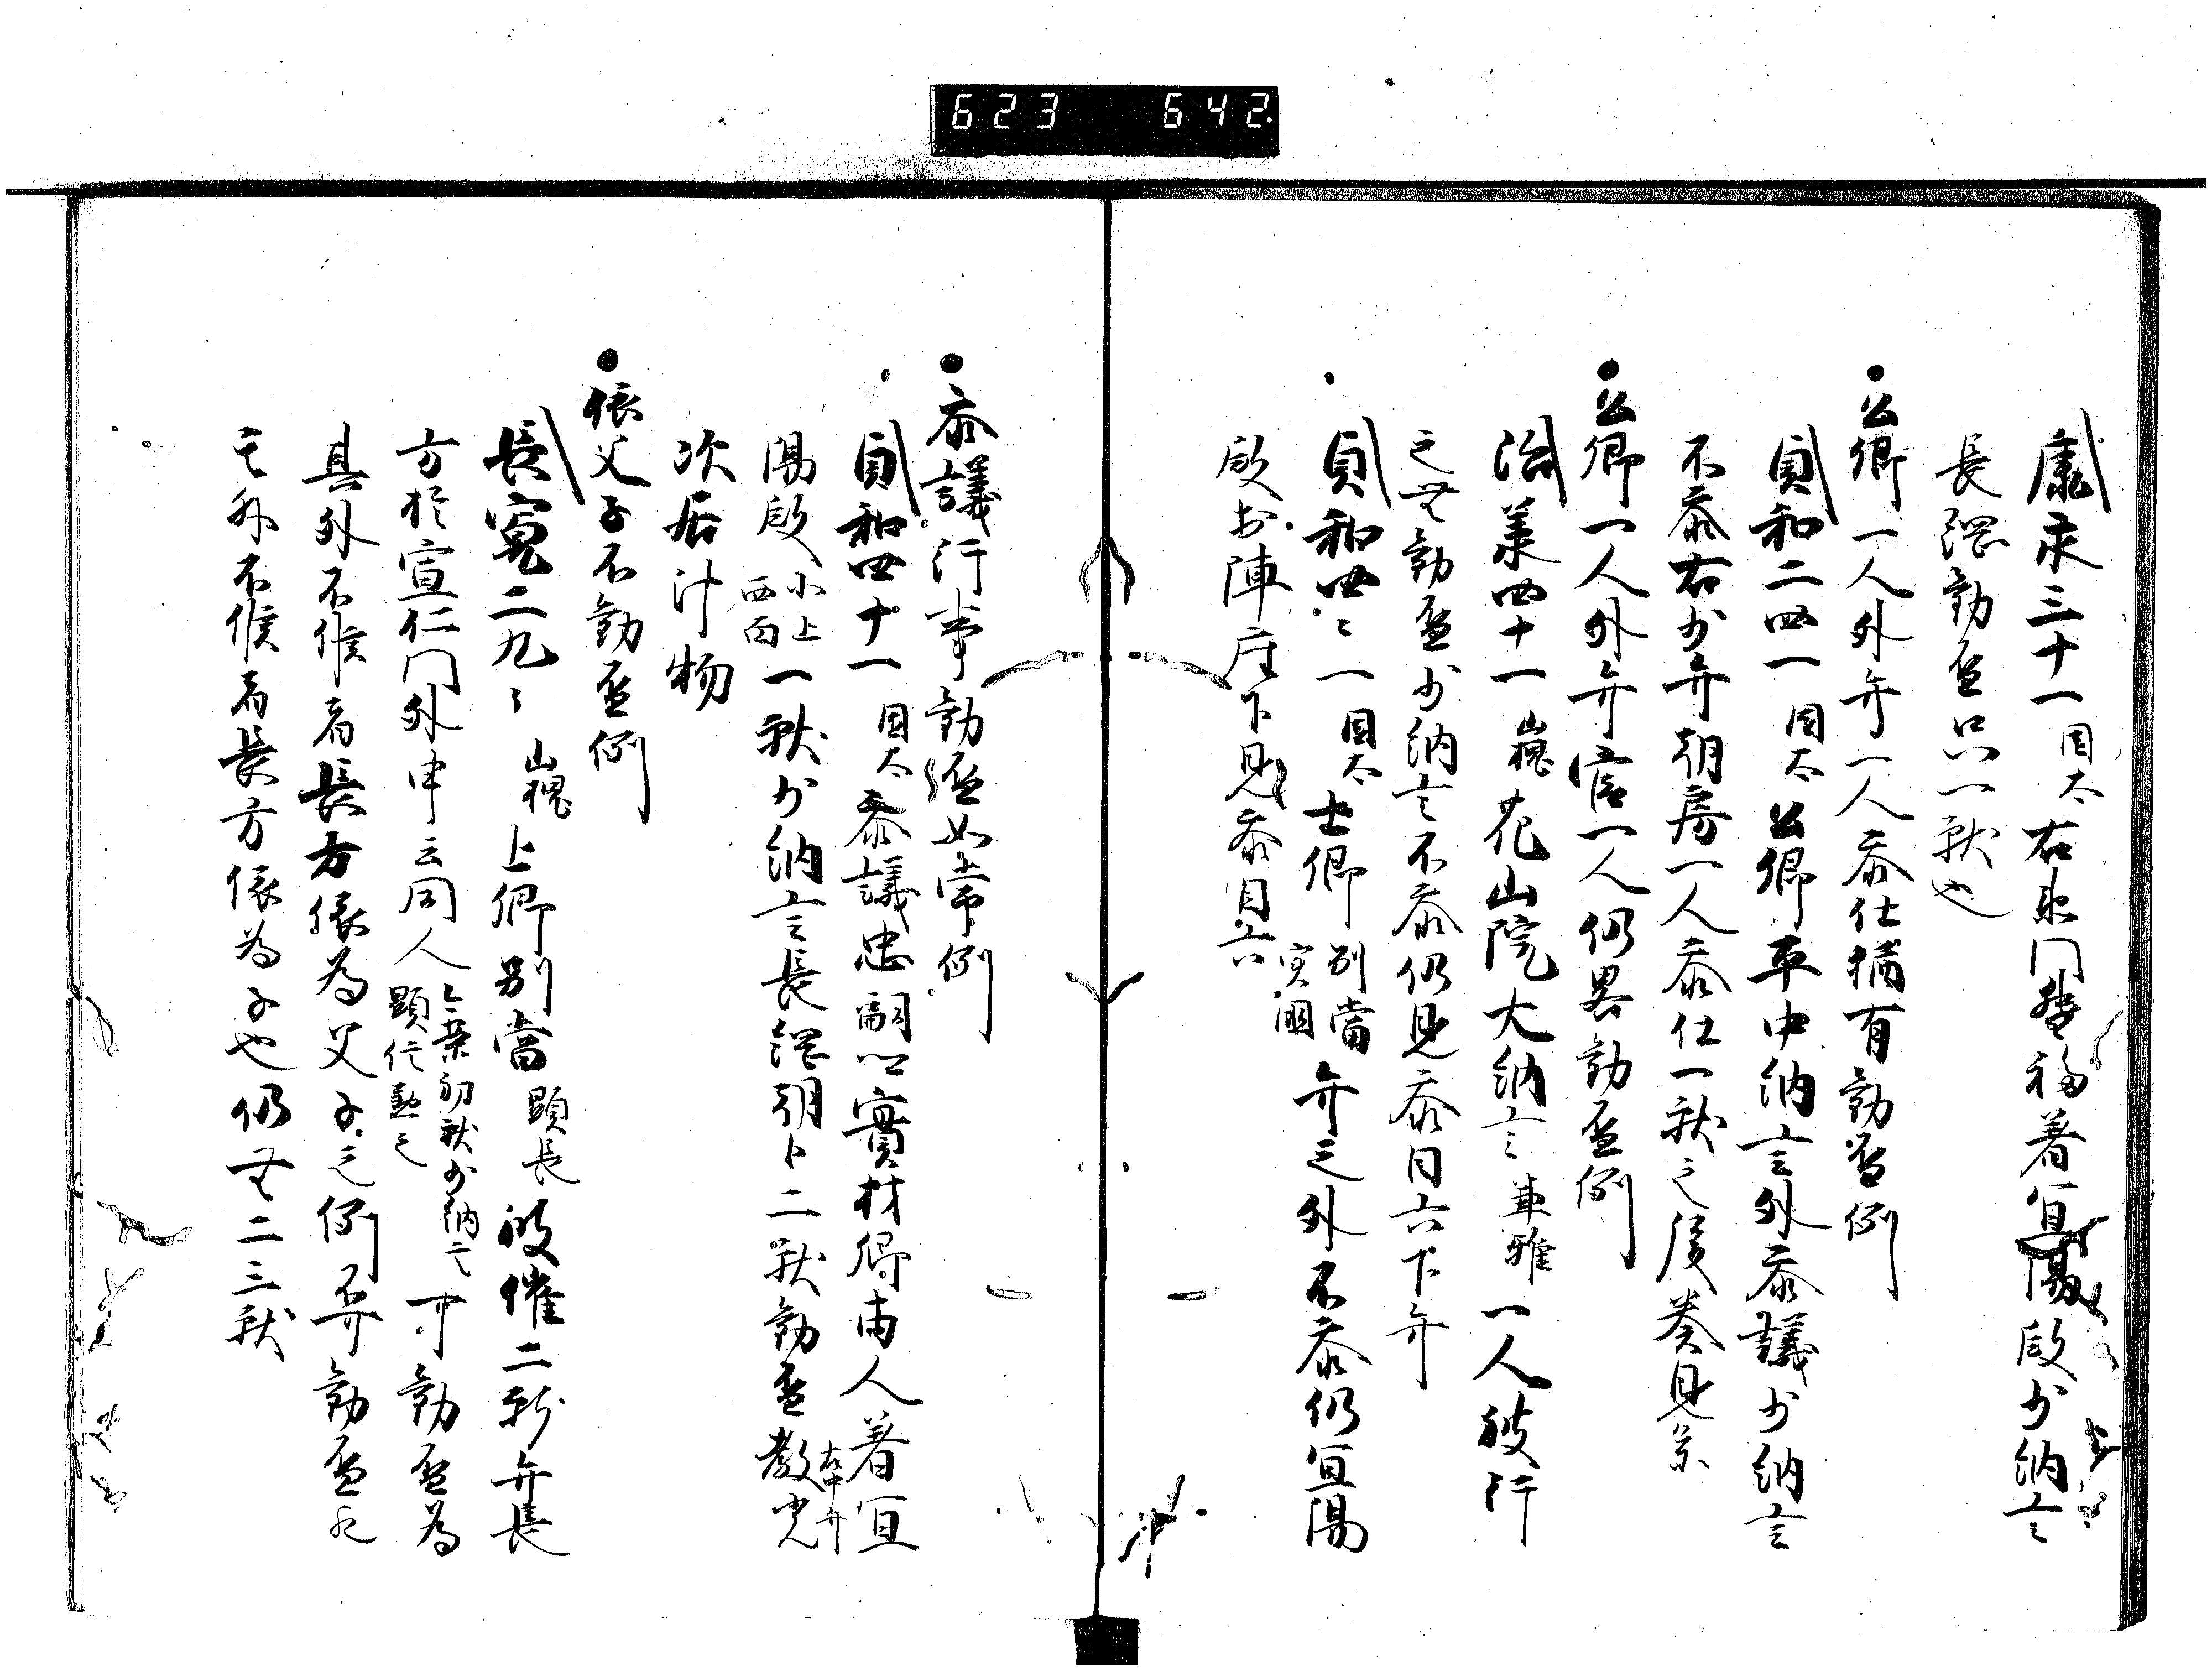 623 642
康永三十一園太右衛門督禄着宜陽殿少納言
長綱勧盃只一献也
公卿一人外弁一人参仕猶有勧盃例
貞和二四一園太公卿平中納言外参議少納言
不参右少弁朝房一人参仕一献之後奏見参
公卿一人外弁官一人仍略勧盃例
治承四十一山槐花山院大納言兼雅一人被行
之無勧盃少納言不参仍見参目六下弁
貞和四三一園太士卿別当実国弁之外不参仍宜陽
殿於陣座下見参目六
参議行事勧盃如常例
貞和四十一園太参議忠嗣公実材卿両人着宜
陽殿北上西面一献少納言長綱朝臣二献勧盃右中弁教光
次居汁物
依父子不勧盃例
長寛二九三山槐上卿別当顕長被催二献弁長
方於宣仁門外申云同人兼初献少納言顕信勤之可勧盃為
其外不候者長方依為父子之例不弁勧盃之
其外不候者長方依為子也仍無二三献